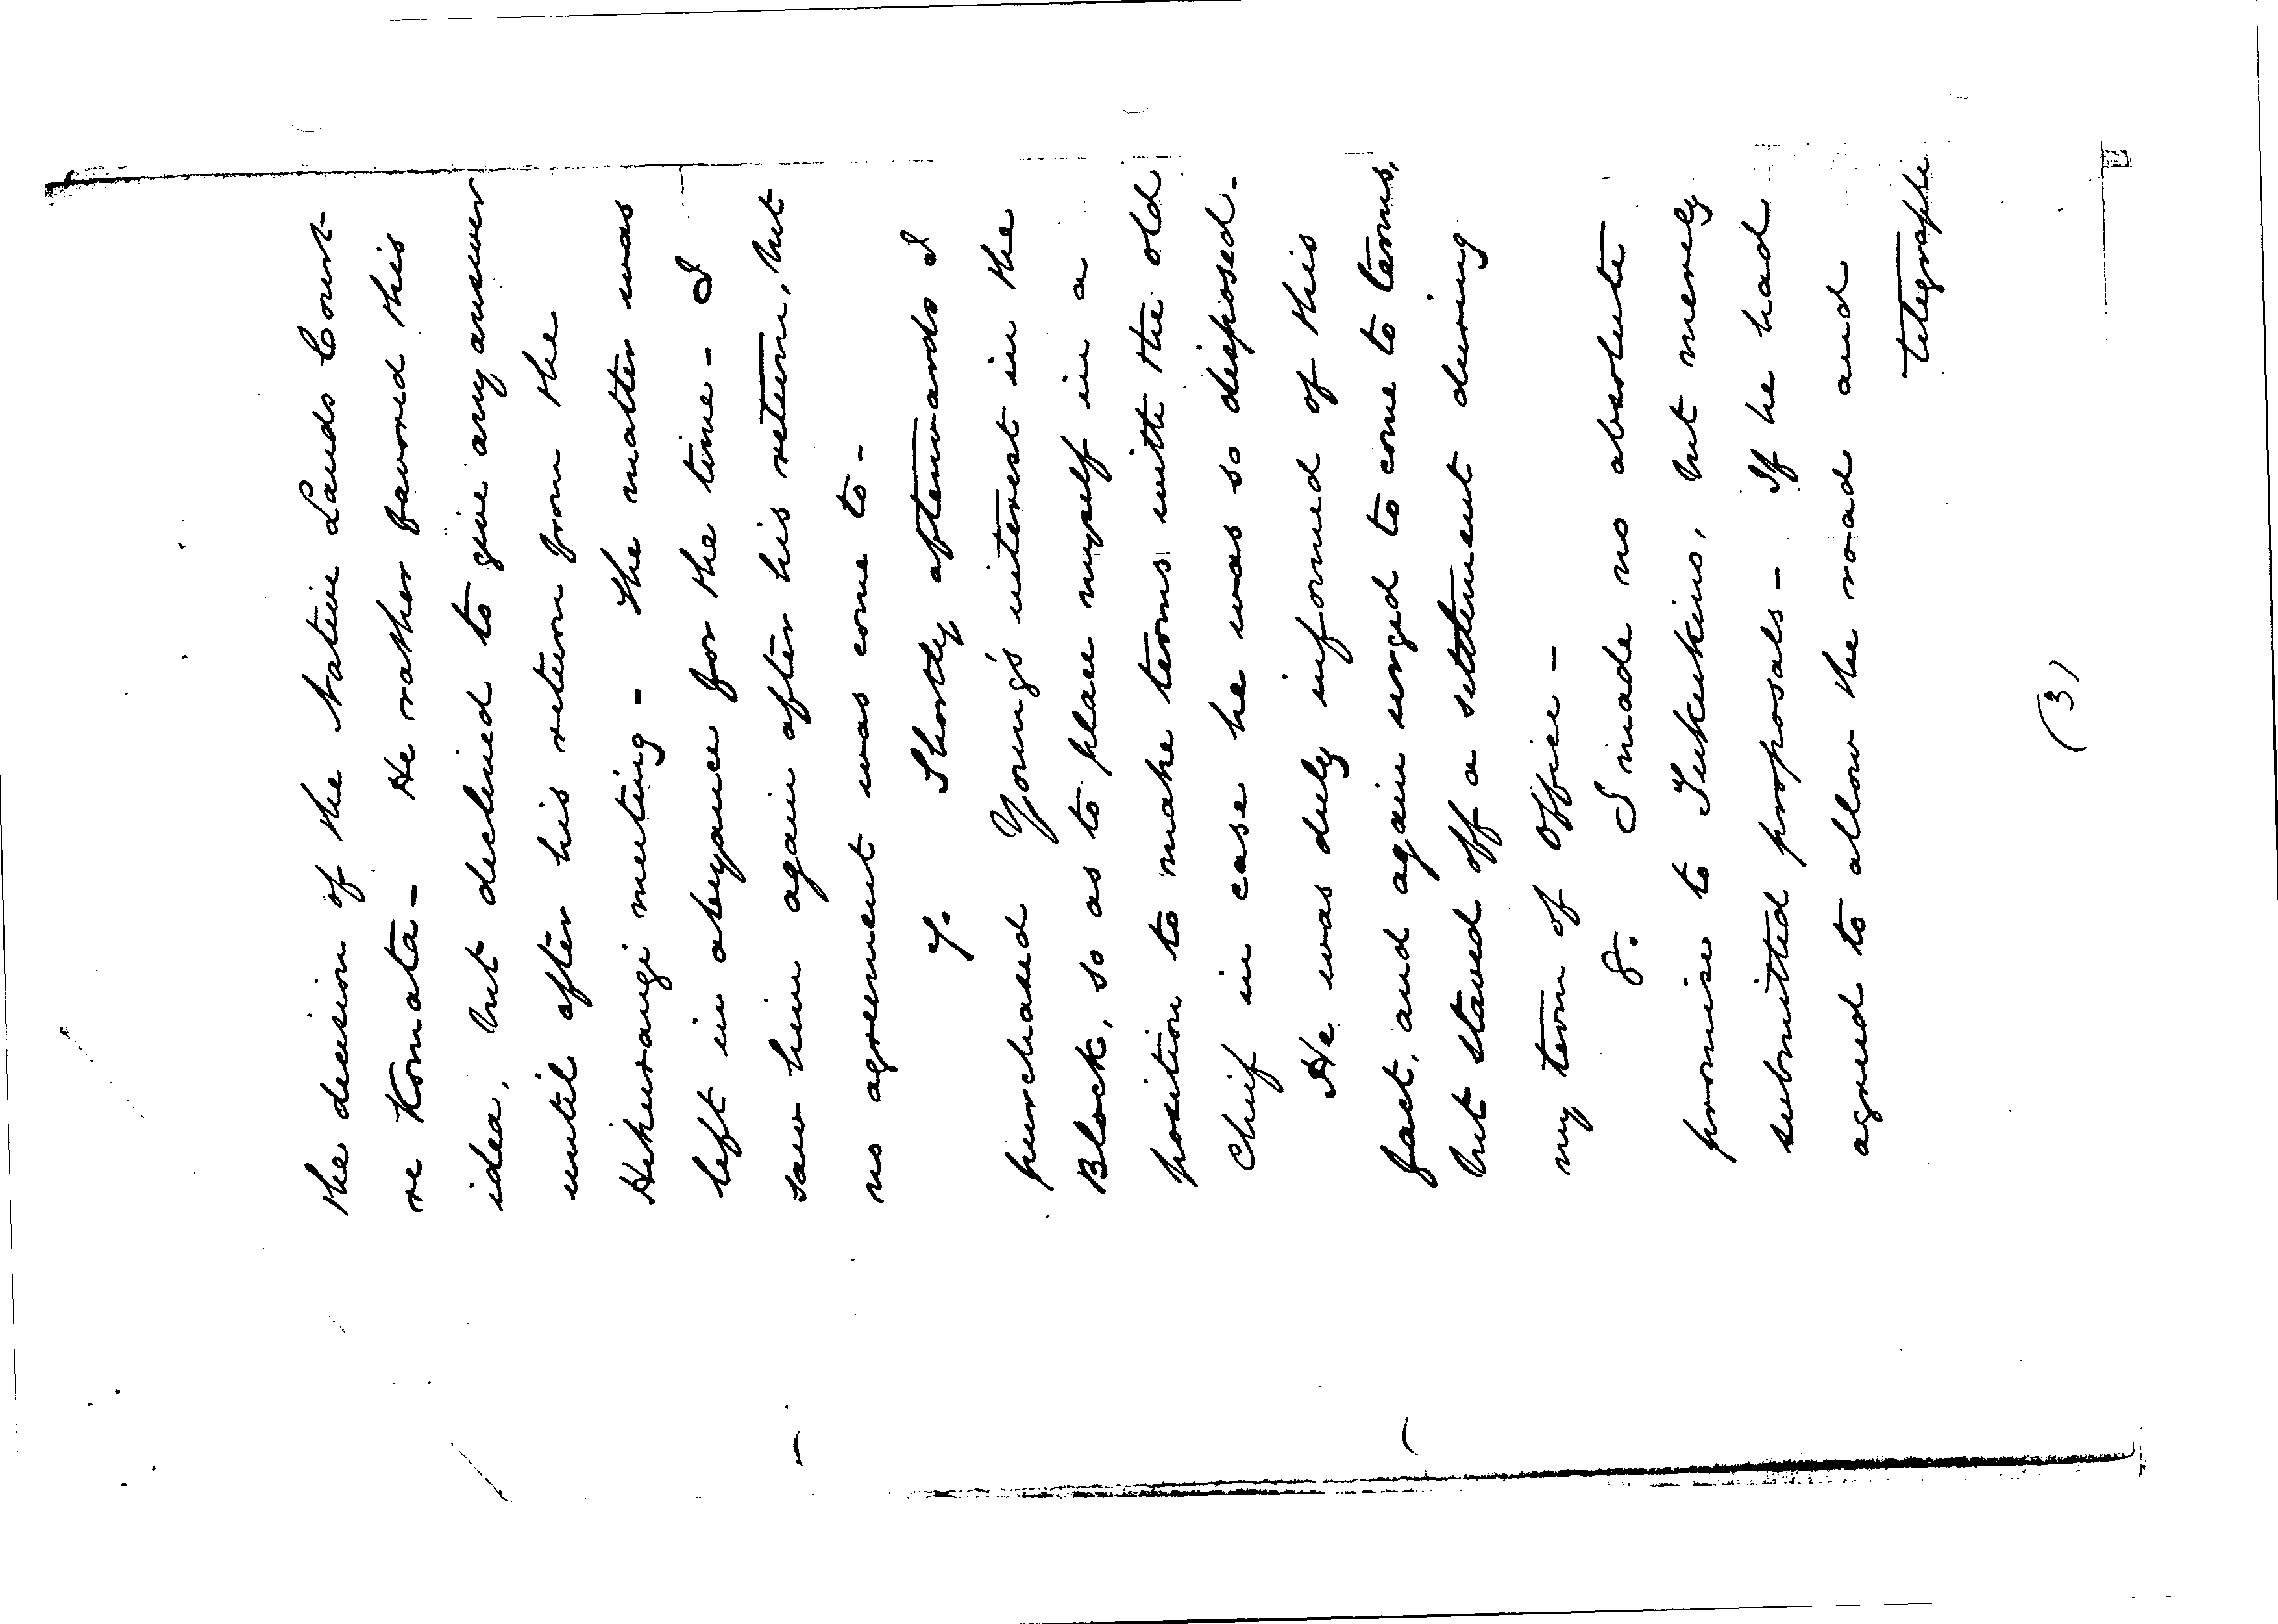 the decision of the Native Lands Court
re Komata - He rather favored this
idea, but declined to give any answer
until after his return from the
Hikurangi meeting - the matter was
left in abeyance for the time - I
saw him again after his return, but
no agreement was come to -
7. Shortly afterwards I
purchased Young's interest in the
Block, so as to place myself in a
position to make terms with the old
Chief in case he was so disposed -
He was duly informed of this
fact, and again urged to come to terms,
but staved off a settlement during
my term of office -
8. I made no absolute
promise to Tukukino, but merely
submitted proposals - If he had
agreed to allow the road and
telegraph
(3)